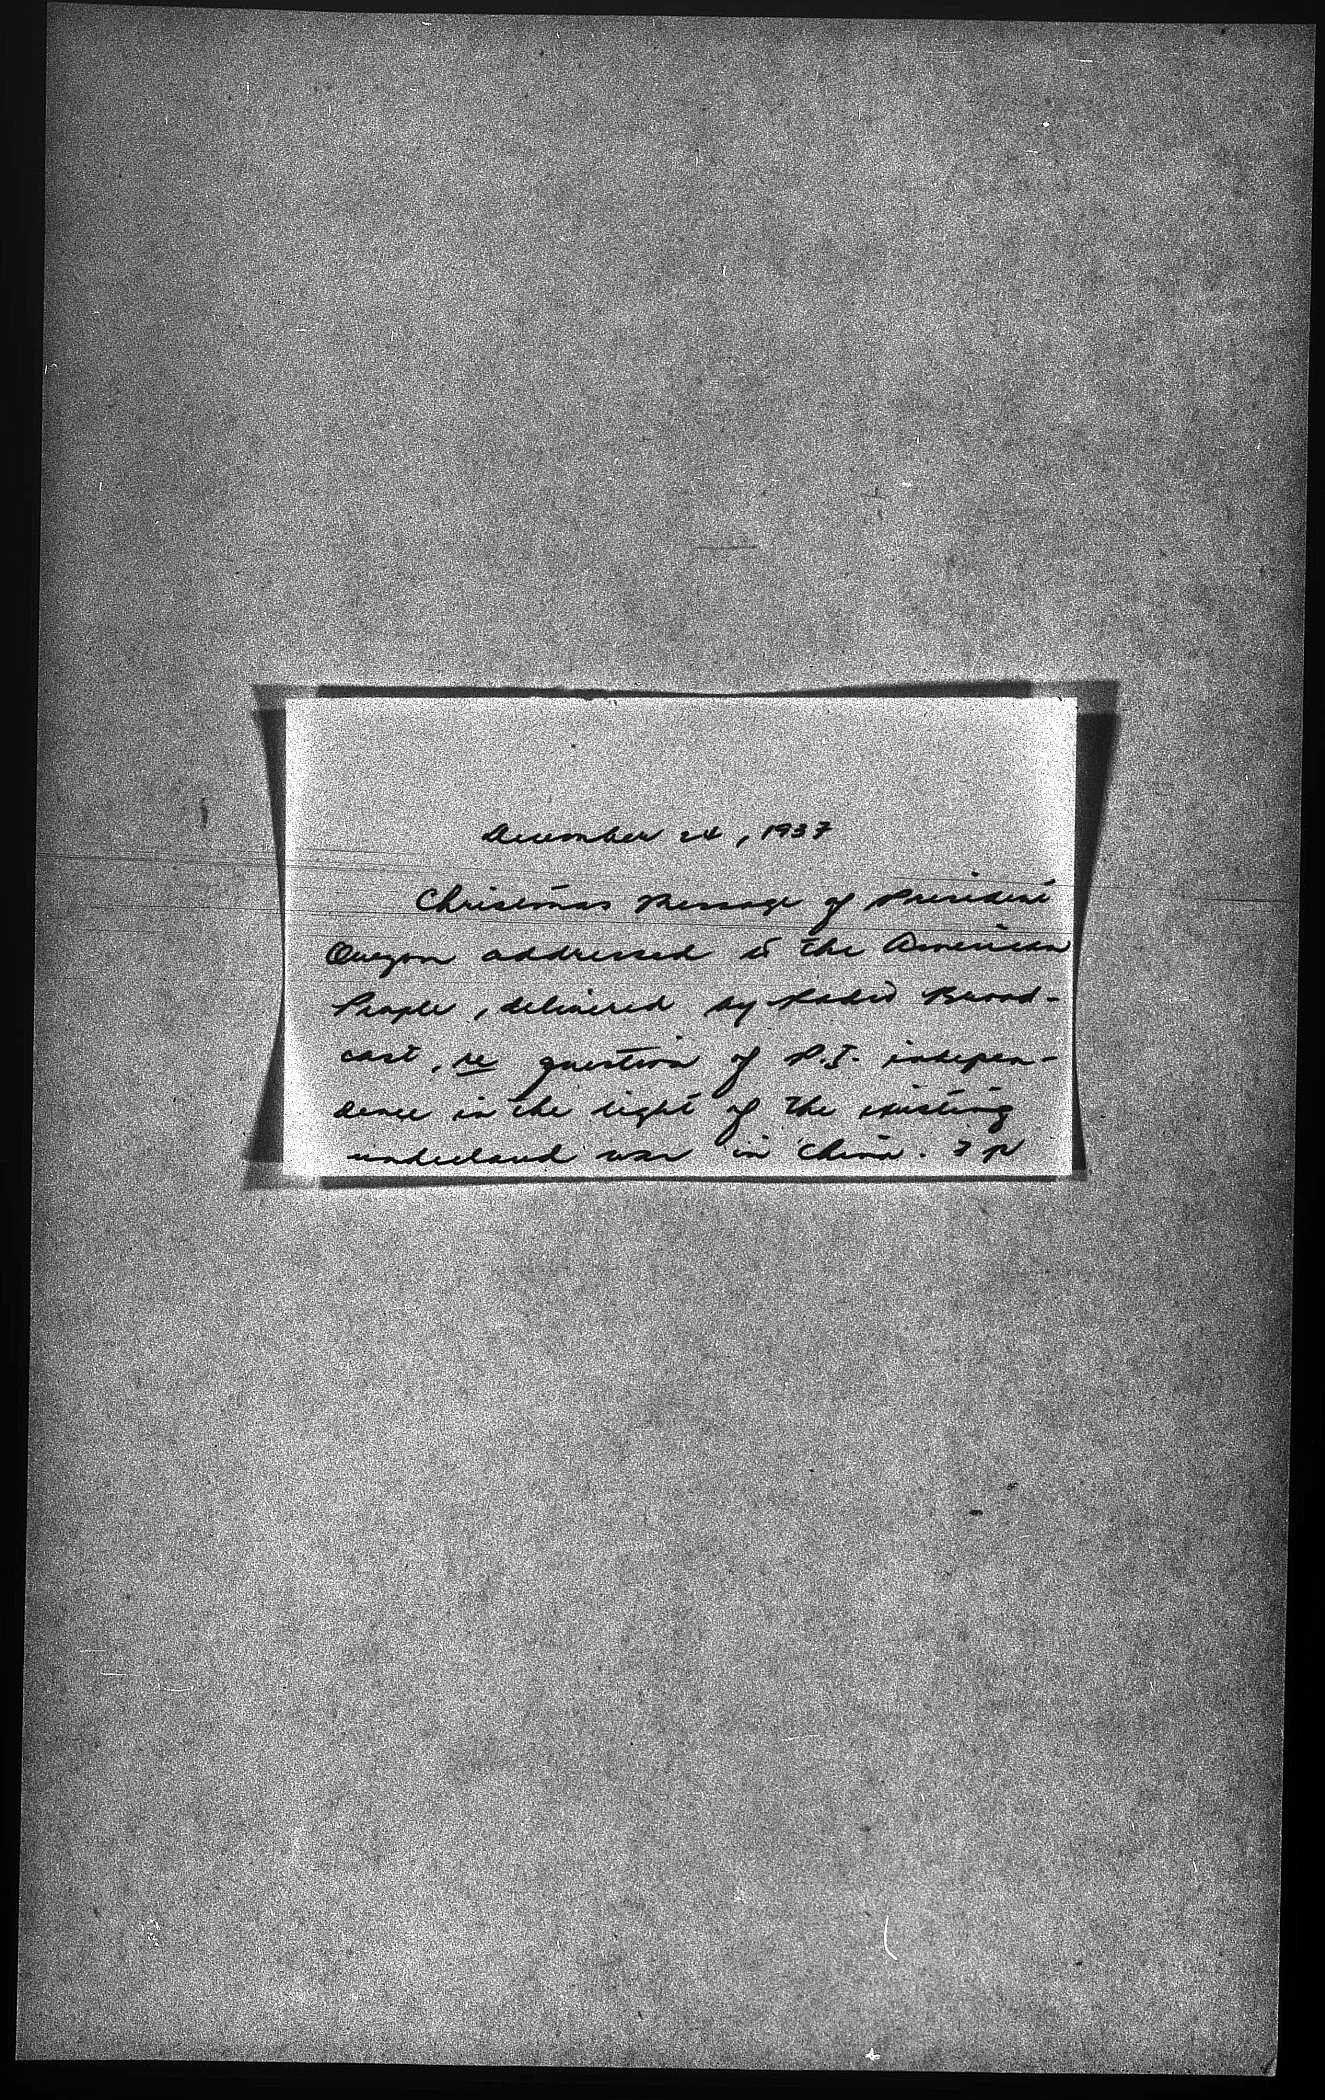 December 24, 1937
Christmas Message of President
Quezon addressed to the American
People, delivered by Radio Broad-
cast, re question of P.I. indepen-
dence in the light of the existing
undeclared war in China. 7 p